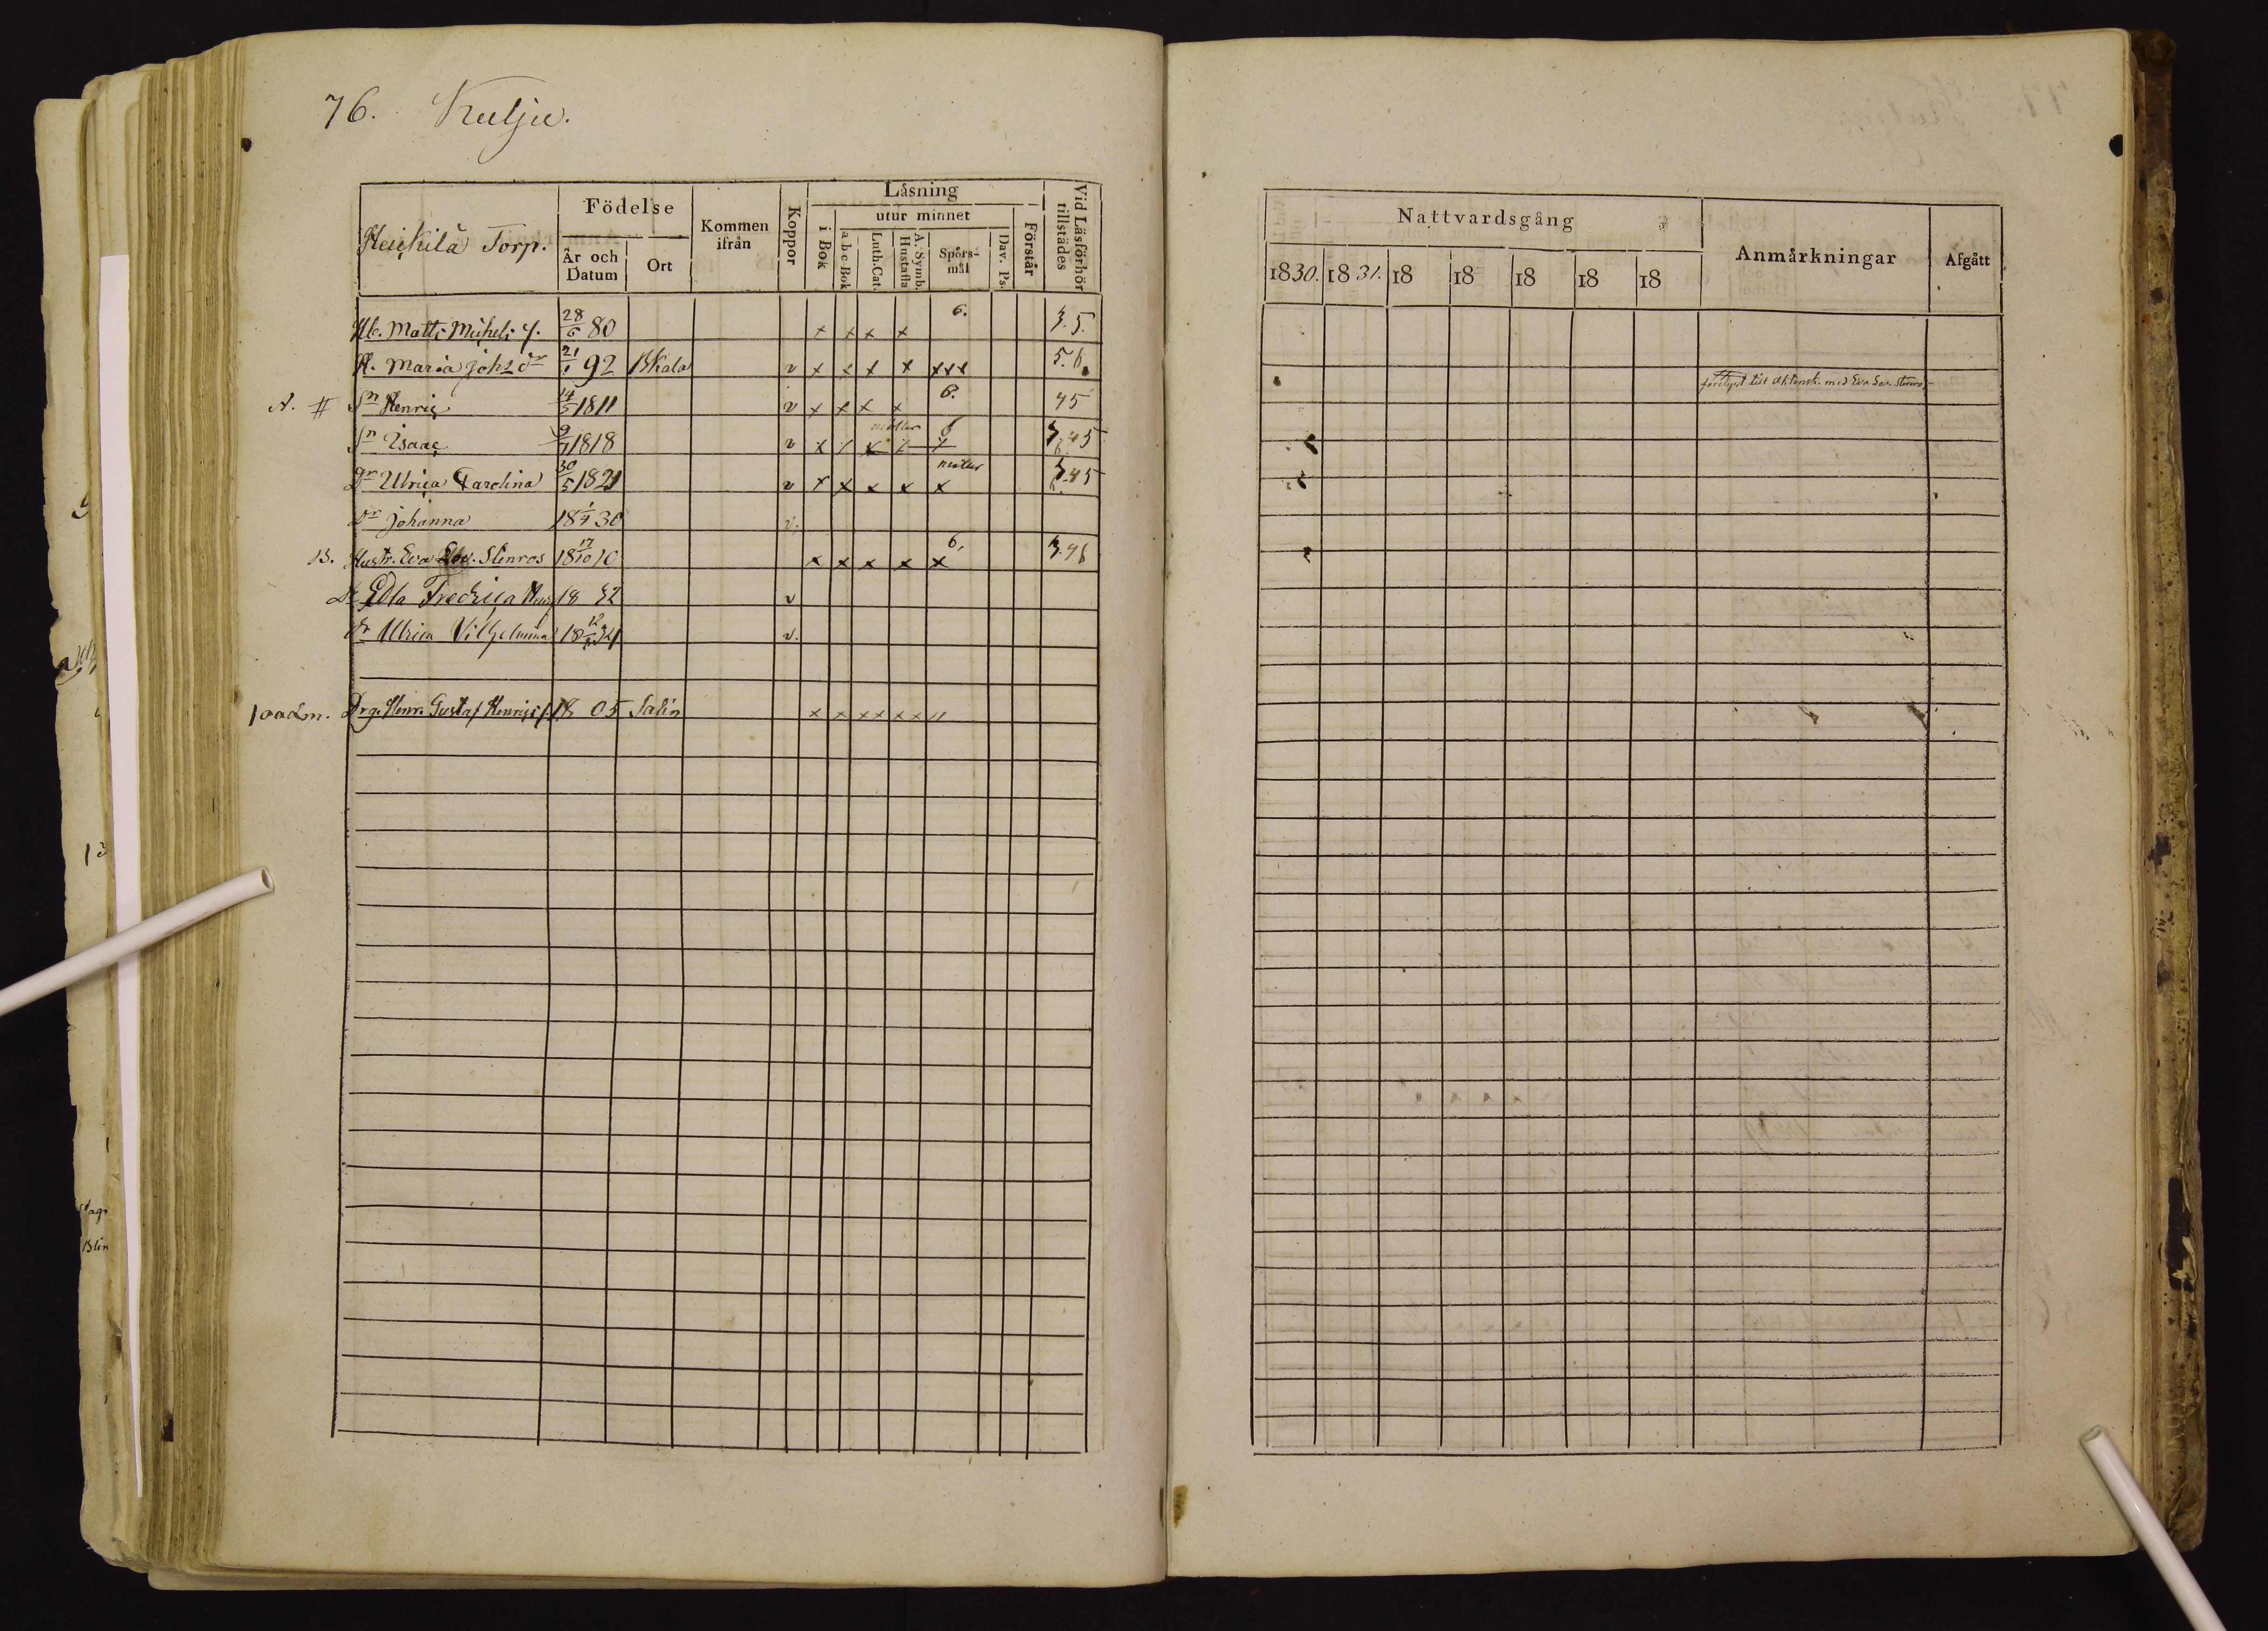 76. Kulju.
Heickilä Torp.
Födelse
År och Datum
Ort
Kommen ifrån
Koppor
Låsning
i Bok
utur minnet
a b c Bok
Luth. Cat.
A. Symb. Hustafla
Spörs-mål
Dav. Ps.
Förstår
Vid Läsförhör tillstädes
Hb. Matti Micheli f. 28/6 80 x x x x 6. 3.5.
H. Maria Joh: dr 21/1 92 BKala v x x x x xxx 5.6.
A. # Sn Henric 14/5 1811 v x x x x 6. 45
Sn Isaac 1818 v x x x x 6 45
Dr Ulrica Carolina 30/5 1821 v x x x x x 45
Dr Johanna 18 1/4 30 v.
B. Hustr. Eva Stenros 18 17/10 10 x x x x x 6. 3.46
Dr Edla Fredrica 18 32 v
Dr Ulrica Vilhelmina 18 34 v.
Drg. Henr. Gustaf Henrici f. 18 05 Sahr
Nattvardsgång
1830. 1831. 18 18 18 18 18
Anmårkningar
Afgått
till äktensk. med Eva